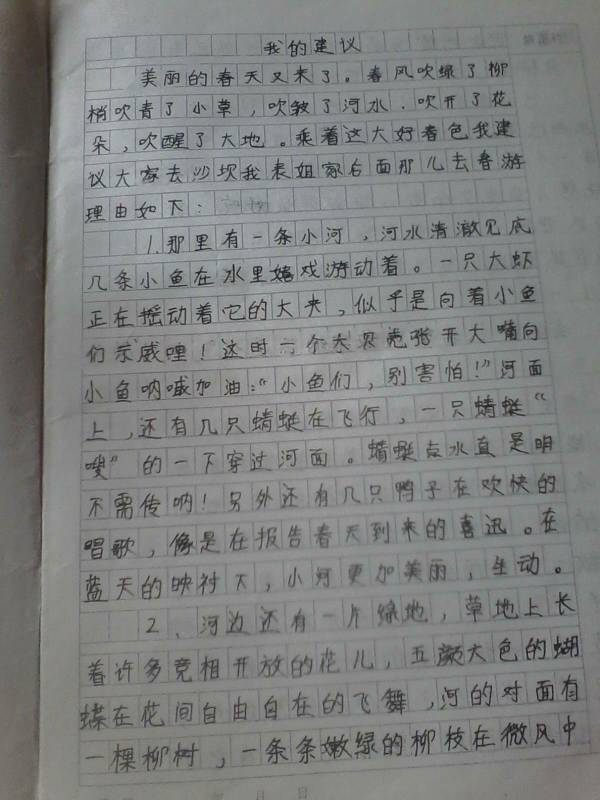 我的建议
美丽的春天又来了。春风吹绿了柳
梢吹青了小草，吹皱了河水．吹开了花
朵，吹醒了大地。乘着这大好春色我建
议大家去沙坝我表姐家后面那儿去春游
理由如下：
1.那里有一条小河，河水清澈见底
几条小鱼在水里嬉戏游动着。一只大虾
正在摇动着它的大夹，似乎是向着小鱼
们示威哩！这时一个大贝壳张开大嘴向
小鱼呐喊加油："小鱼们，别害怕！"河面
上，还有几只蜻蜓在飞行，一只蜻蜓"
嗖"的一下穿过河面。蜻蜓点水直是明
不需传呐！另外还有几只鸭子在欢快的
唱歌，像是在报告春天到来的喜迅。在
蓝天的映衬下，小河更加美丽，生动。
2、河边还有一片绿地，草地上长
着许多竞相开放的花儿，五颜大色的蝴
蝶在花间自由自在的飞舞，河的对面有
一棵柳树，一条条嫩绿的柳枝在微风中
月 日